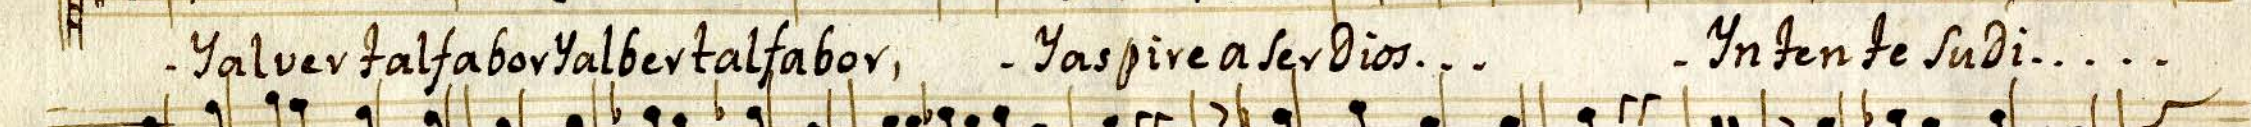 -Yalver talfaborYalbertalfabor, -Yaspire a ser Dios... -Yntente su Di.....